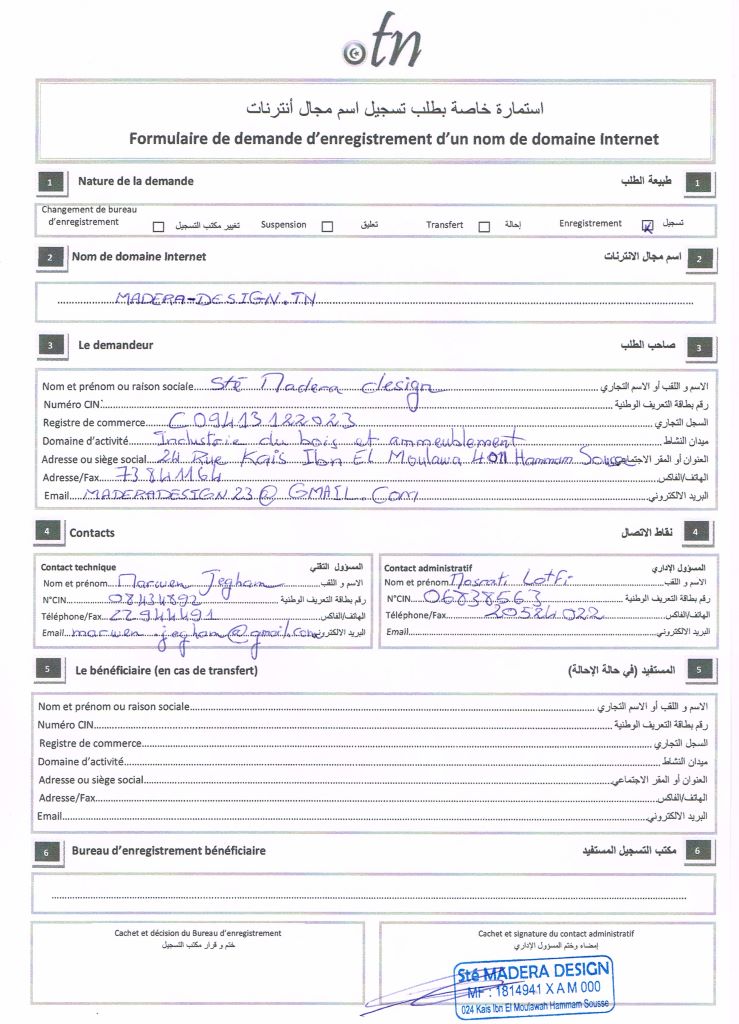 .tn
استمارة خاصة بطلب تسجيل اسم مجال أنترنات
Formulaire de demande d'enregistrement d'un nom de domaine Internet
1 Nature de la demande طبيعة الطلب 1
Changement de bureau d'enregistrement تغيير مكتب التسجيل Suspension تعليق Transfert إحالة Enregistrement تسجيل
2 Nom de domaine Internet اسم مجال الانترنات 2
MADERA-DESIGN.TN
3 Le demandeur صاحب الطلب 3
Nom et prénom ou raison sociale Sté Madera design الاسم و اللقب أو الاسم التجاري
Numéro CIN رقم بطاقة التعريف الوطنية
Registre de commerce C09413122023 السجل التجاري
Domaine d'activité Industrie du bois et ammeublement ميدان النشاط
Adresse ou siège social 24 Rue Kais Ibn El Moulawa 4011 Hammam Sousse العنوان أو المقر الاجتماعي
Adresse/Fax 73841164 الهاتف/الفاكس
Email MADERADESIGN23@GMAIL.Com البريد الالكتروني
4 Contacts نقاط الاتصال 4
Contact technique المسؤول التقني
Nom et prénom Marwen Jegham الاسم و اللقب
N°CIN 08434892 رقم بطاقة التعريف الوطنية
Téléphone/Fax 22944491 الهاتف/الفاكس
Email marwen.jegham@gmail.com البريد الالكتروني
Contact administratif المسؤول الإداري
Nom et prénom Mosrati Lotfi الاسم و اللقب
N°CIN 06838563 رقم بطاقة التعريف الوطنية
Téléphone/Fax 20524022 الهاتف/الفاكس
Email البريد الالكتروني
5 Le bénéficiaire (en cas de transfert) المستفيد (في حالة الإحالة) 5
Nom et prénom ou raison sociale الاسم و اللقب أو الاسم التجاري
Numéro CIN رقم بطاقة التعريف الوطنية
Registre de commerce السجل التجاري
Domaine d'activité ميدان النشاط
Adresse ou siège social العنوان أو المقر الاجتماعي
Adresse/Fax الهاتف/الفاكس
Email البريد الالكتروني
6 Bureau d'enregistrement bénéficiaire مكتب التسجيل المستفيد 6
Cachet et décision du Bureau d'enregistrement
ختم و قرار مكتب التسجيل
Cachet et signature du contact administratif
إمضاء وختم المسؤول الإداري
Sté MADERA DESIGN
MF : 1814941 X A M 000
024 Kais Ibn El Moulawah Hammam Sousse